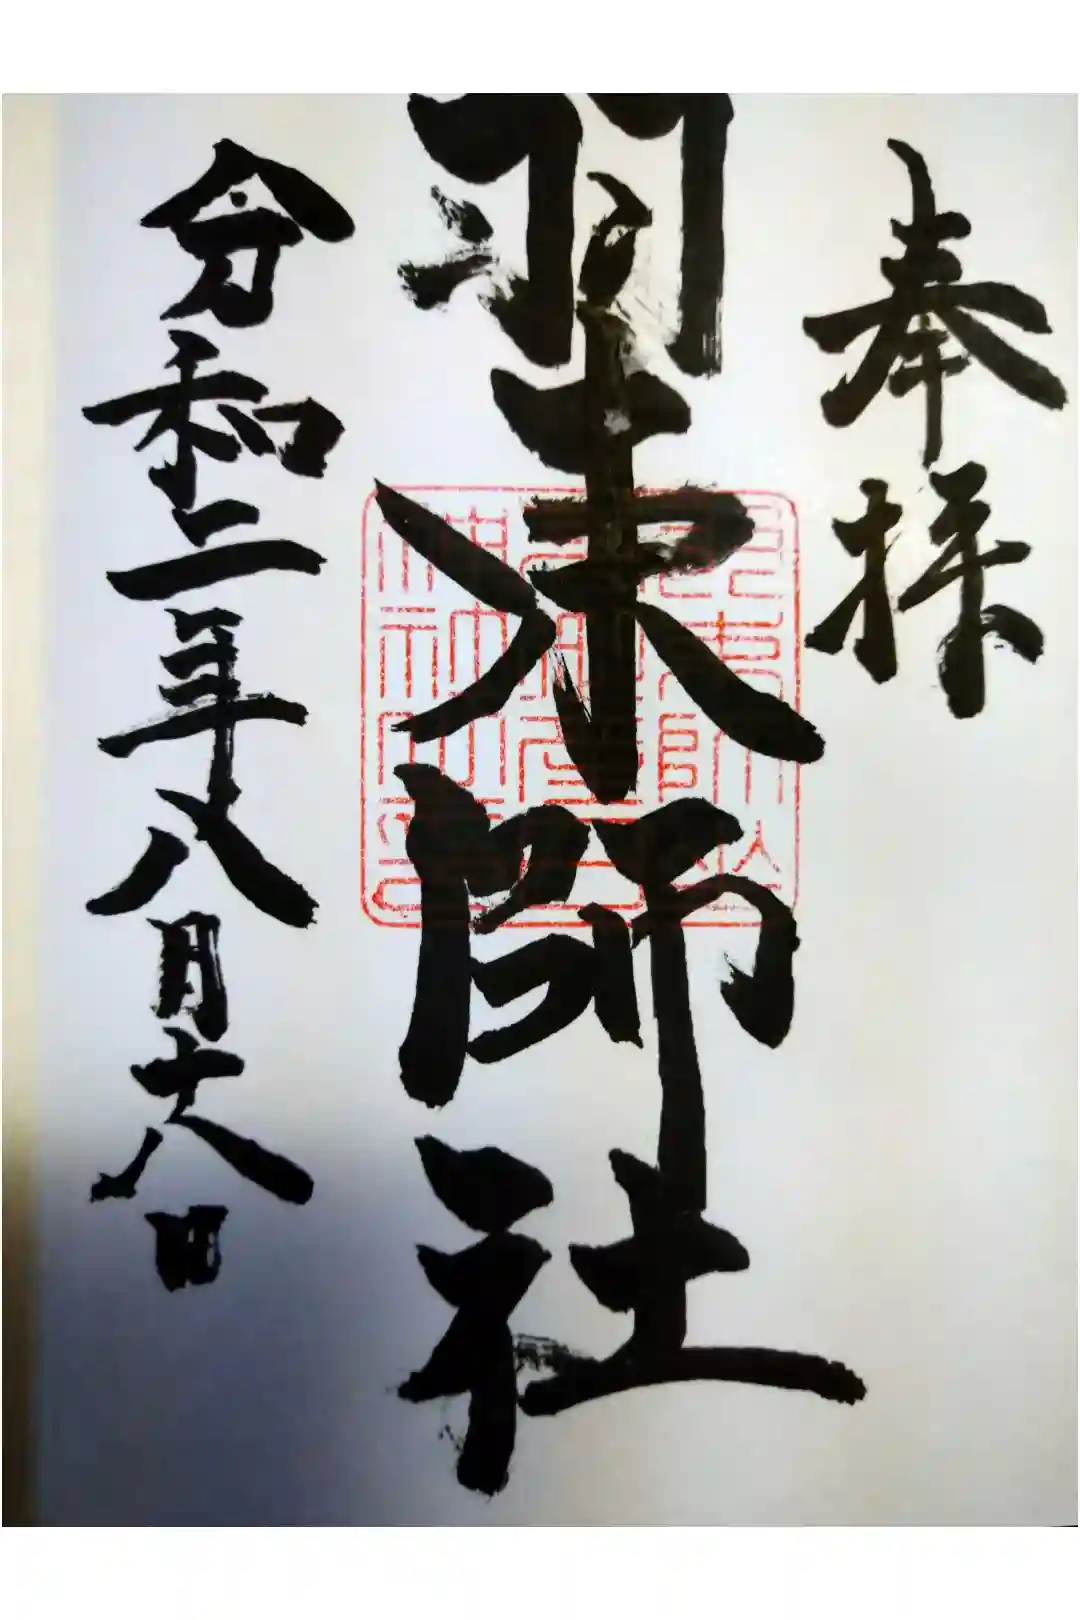 奉拝
羽束師社
令和二年八月十八日